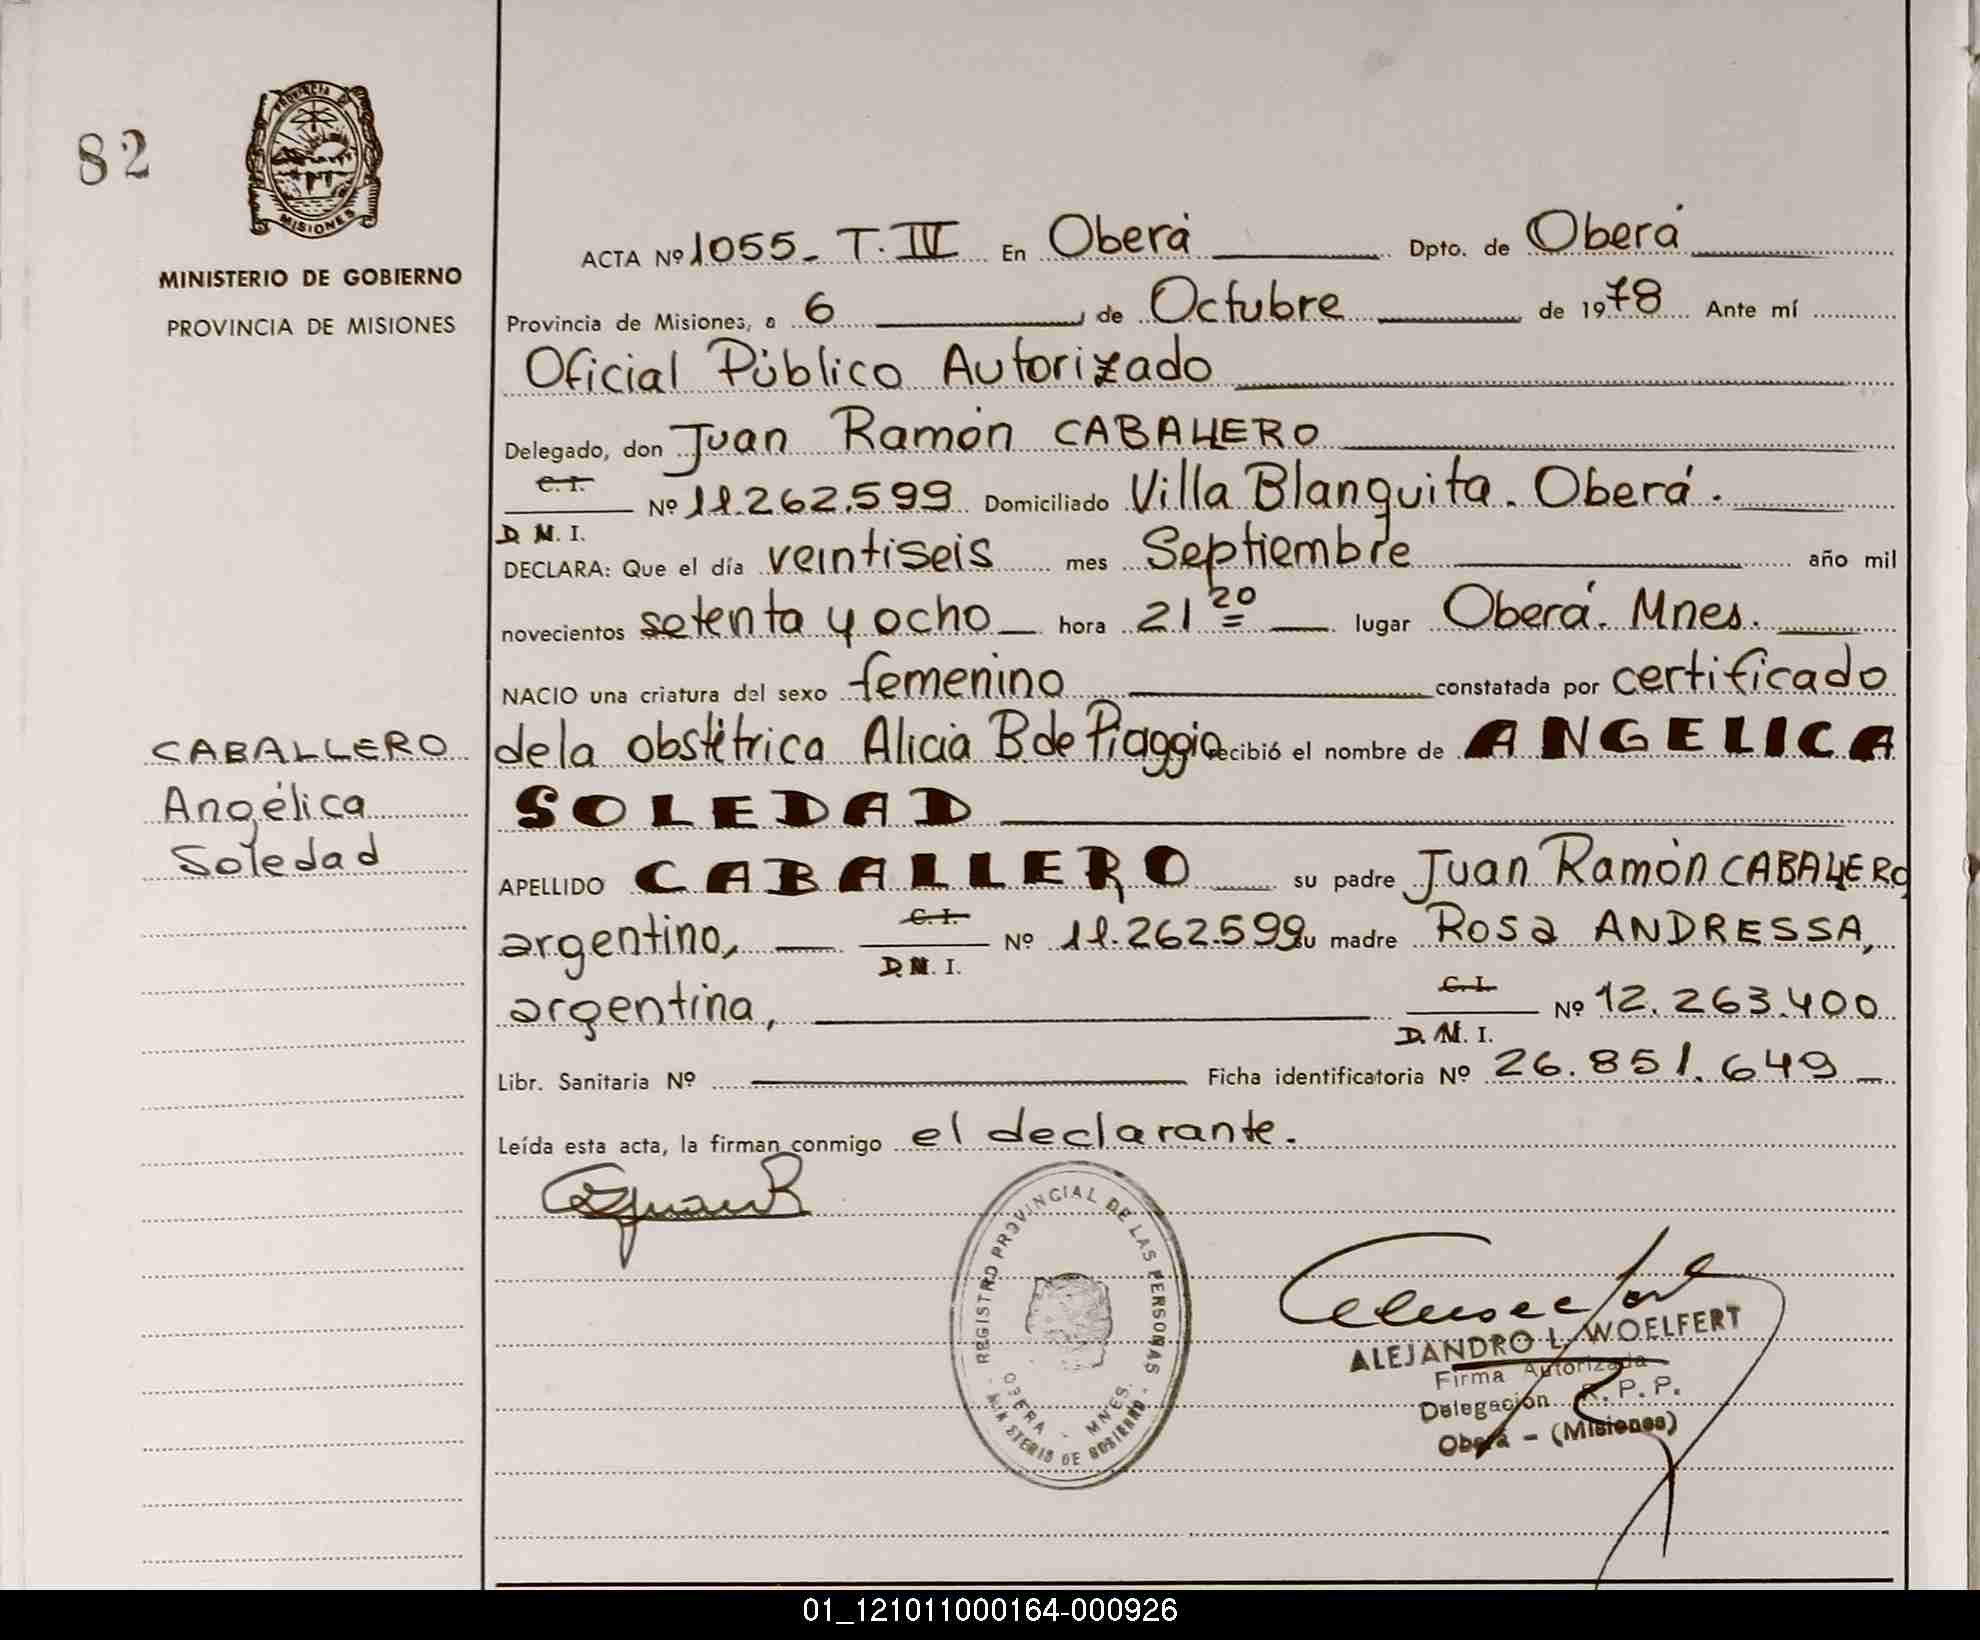 82
PROVINCIA DE
MISIONES
MINISTERIO DE GOBIERNO
PROVINCIA DE MISIONES
CABALLERO
Angélica
Soledad
ACTA Nº 1055_ T. IV En Oberá Dpto. de Oberá
Provincia de Misiones, a 6 de Octubre de 1978 Ante mí
Oficial Público Autorizado
Delegado, don Juan Ramón CABALLERO
C. I.
Nº 11.262.599 Domiciliado Villa Blanquita. Oberá.
D. N. I.
DECLARA: Que el día veintiseis mes Septiembre año mil
novecientos setenta y ocho hora 21 20 lugar Oberá. Mnes.
NACIO una criatura del sexo femenino constatada por certificado
de la obstétrica Alicia B de Piaggio recibió el nombre de ANGELICA
SOLEDAD
APELLIDO CABALLERO su padre Juan Ramón CABALLERO
argentino, C. I. Nº 11.262.599 su madre Rosa ANDRESSA,
D. N. I.
argentina, C. I. Nº 12.263.400
D. N. I.
Libr. Sanitaria Nº Ficha identificatoria Nº 26.851.649
Leída esta acta, la firman conmigo el declarante.
REGISTRO PROVINCIAL DE LAS PERSONAS
OBERA - MNES.
MINISTERIO DE GOBIERNO
ALEJANDRO L. WOELFERT
Firma Autorizada
Delegación R. P. P.
Oberá - (Misiones)
01_121011000164-000926